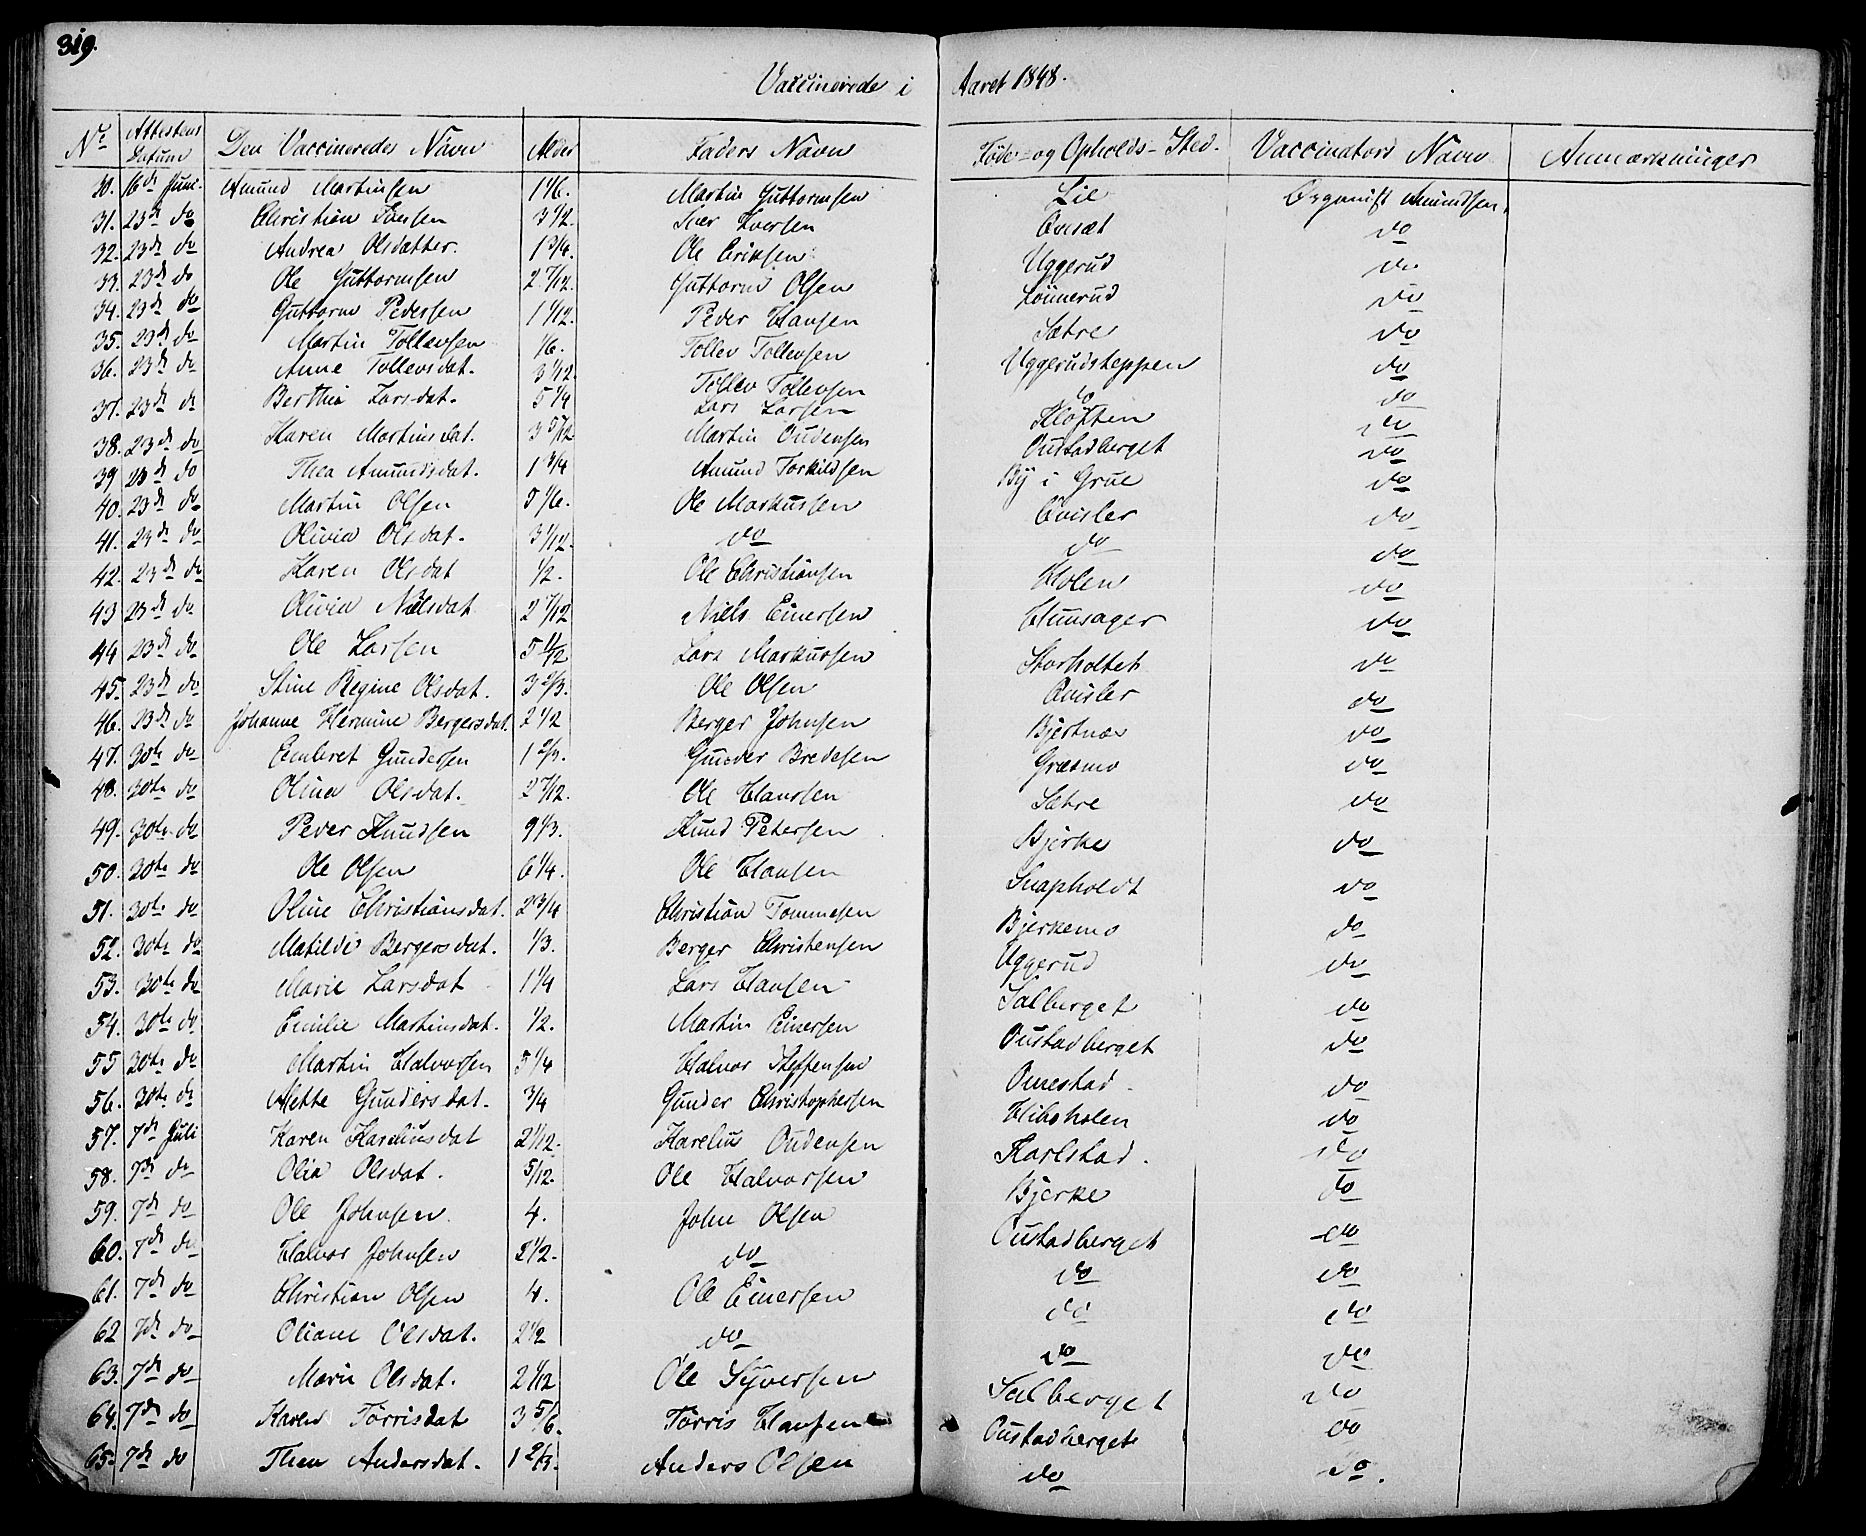 319.
Vaccinerede i Aaret 1848.
No Attestens Datum Den Vaccineredes Navn Alder Faders Navn Føde- og Opholds-Sted. Vaccinators Navn Anmærkninger
30. 16de Juni. Amund Martinsen 1 1/6. Martin Guttormsen Lie Organist Amundsen.
31. 23de do Christian Iversen 3 1/2. Iver Iversen Qvisæt do
32. 23de do Andrea Olsdatter. 1 3/4. Ole Eriksen Uggerud do
33. 23de do Ole Guttormsen 2 7/12. Guttorm Olsen Lønnerud do
34. 23de do Guttorm Pedersen 1 1/12. Peder Hansen Sætre do
35. 23de do Martin Tollevsen 1/6. Tollev Tollevsen Uggerudsteppen do
36. 23de do Anne Tollevsdat. 3 1/12. Tollev Tollevsen do do
37. 23de do Berthie Larsdat. 5 1/4 Lars Larsen Kløften do
38. 23de do Karen Martinsdat. 3 5/12 Martin Oudensen Oustadberget do
39 23de do Thea Amundsdat. 1 3/4 Amund Torkildsen By i Grue do
40. 23de do Martin Olsen 5 1/6. Ole Markussen Qvisler do
41. 23de do Olivia Olsdat. 3 1/12. do do do
42. 23de do Karen Olsdat 1/2. Ole Christiansen Holen do
43 23de do Olivia Nilsdat 2 7/12 Niels Einersen Huusager do
44 23de do Ole Larsen 5 1/12 Lars Markussen Storholtet do
45. 23de do Stine Regine Olsdat. 3 2/3. Ole Olsen Qvisler do
46. 23de do Johanne Hermine Bergersdat. 2 1/2 Berger Johnsen Bjertnæs do
47. 30te do Embret Gundersen 1 2/3. Gunder Bredesen Græsmo do
48. 30te do Olina Olsdat. 2 7/12. Ole Hanssen Sætre do
49. 30te do Peder Knudsen 9 1/3. Knud Petersen Bjerke do
50. 30te do Ole Olsen 6 1/4. Ole Hansen Snapholdt do
51. 30te do Oline Christiansdat. 2 3/4 Christian Tommesen Bjerkemo do
52. 30te do Matilde Bergersdat. 1/3. Berger Christensen Uggerud do
53. 30te do Marie Larsdat 1 1/4 Lars Hansen Salberget do
54. 30te do Emilie Martinsdat. 1/2. Martin Einersen Oustadberget do
55 30te do Martin Halvorsen 5 1/4 Halvor Steffensen Ounestad. do
56. 30te do Mette Gundersdat. 3/4 Gunder Christophersen Hiboholen do
57. 7de Juli Karen Kareliusdat 2 1/12. Karelius Oudensen Karlstad. do
58. 7de do Olia Olsdat. 5/12. Ole Halvorsen Bjerke do
59. 7de do Ole Johnsen 4. John Olsen Oustadberget do
60. 7de do Halvor Johnsen 2 1/2. do do do
61. 7de do Christian Olsen 4. Ole Einersen do do
62 7de do Oliane Olsdat. 2 1/2 do do do
63. 7de do Marie Olsdat. 2 1/12 Ole Syversen Salberget do
64. 7de do Karen Tørrisdat 3 5/6. Tørris Hansen Oustadberget do
65. 7de do Thea Andersdat. 1 2/3. Anders Olsen do do.